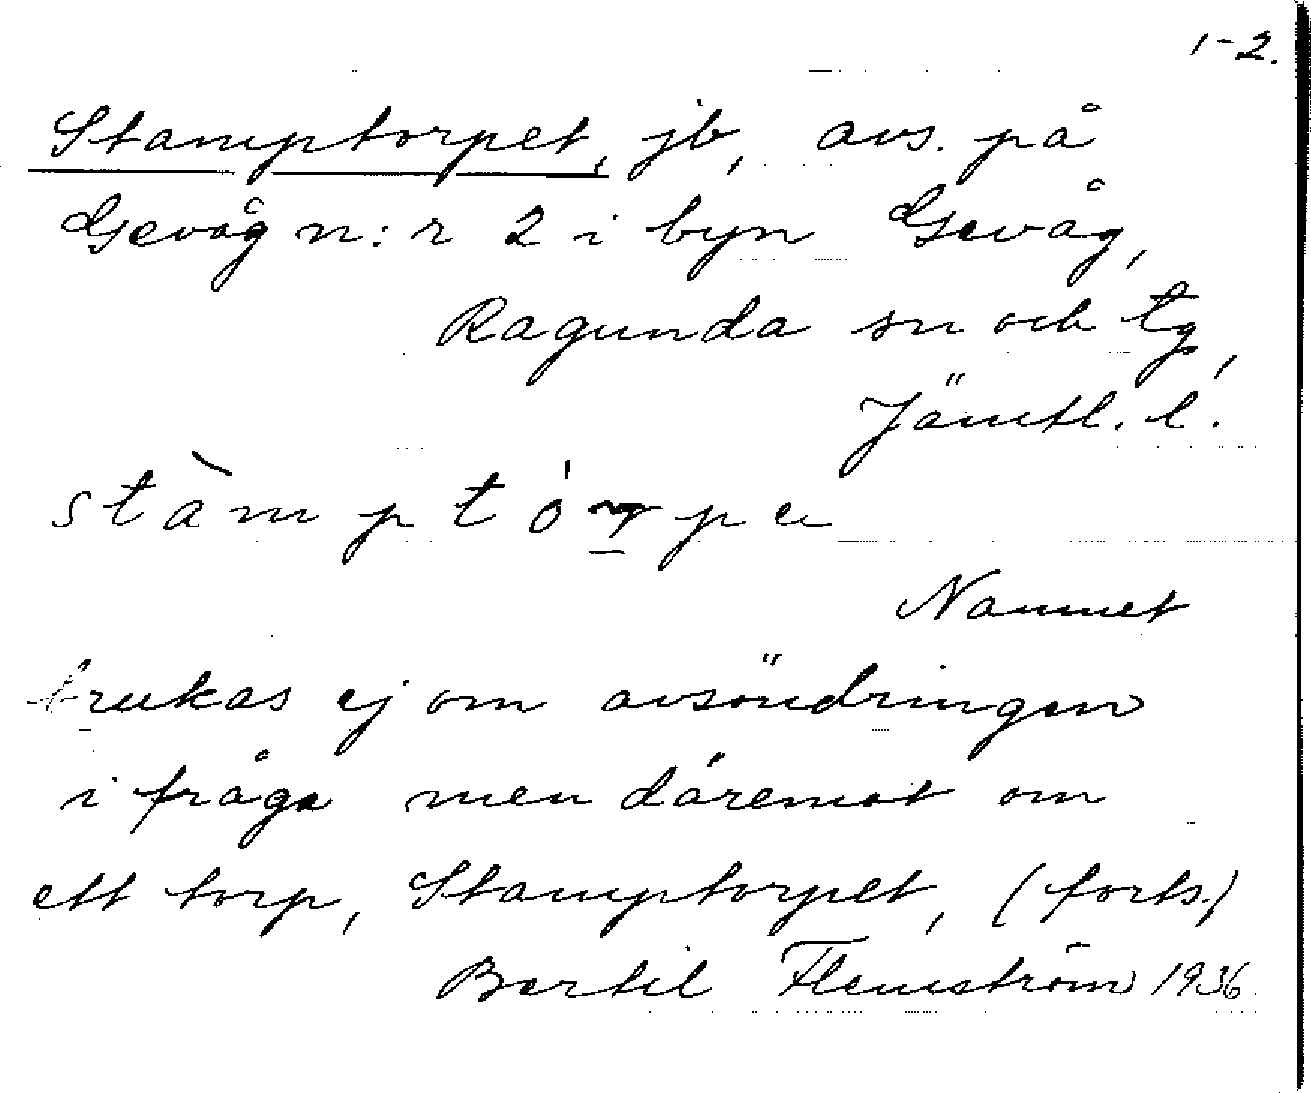 1-2.
Stamptorpet, jb, avs. på
Gevåg n:r 2 i byn Gevåg,
Ragunda sn och tg,
Jämtl. l.
Namnet
brukas ej om avsöndringen
i fråga men däremot om
ett torp, Stamptorpet, (forts.)
Bertil Flemström 1936